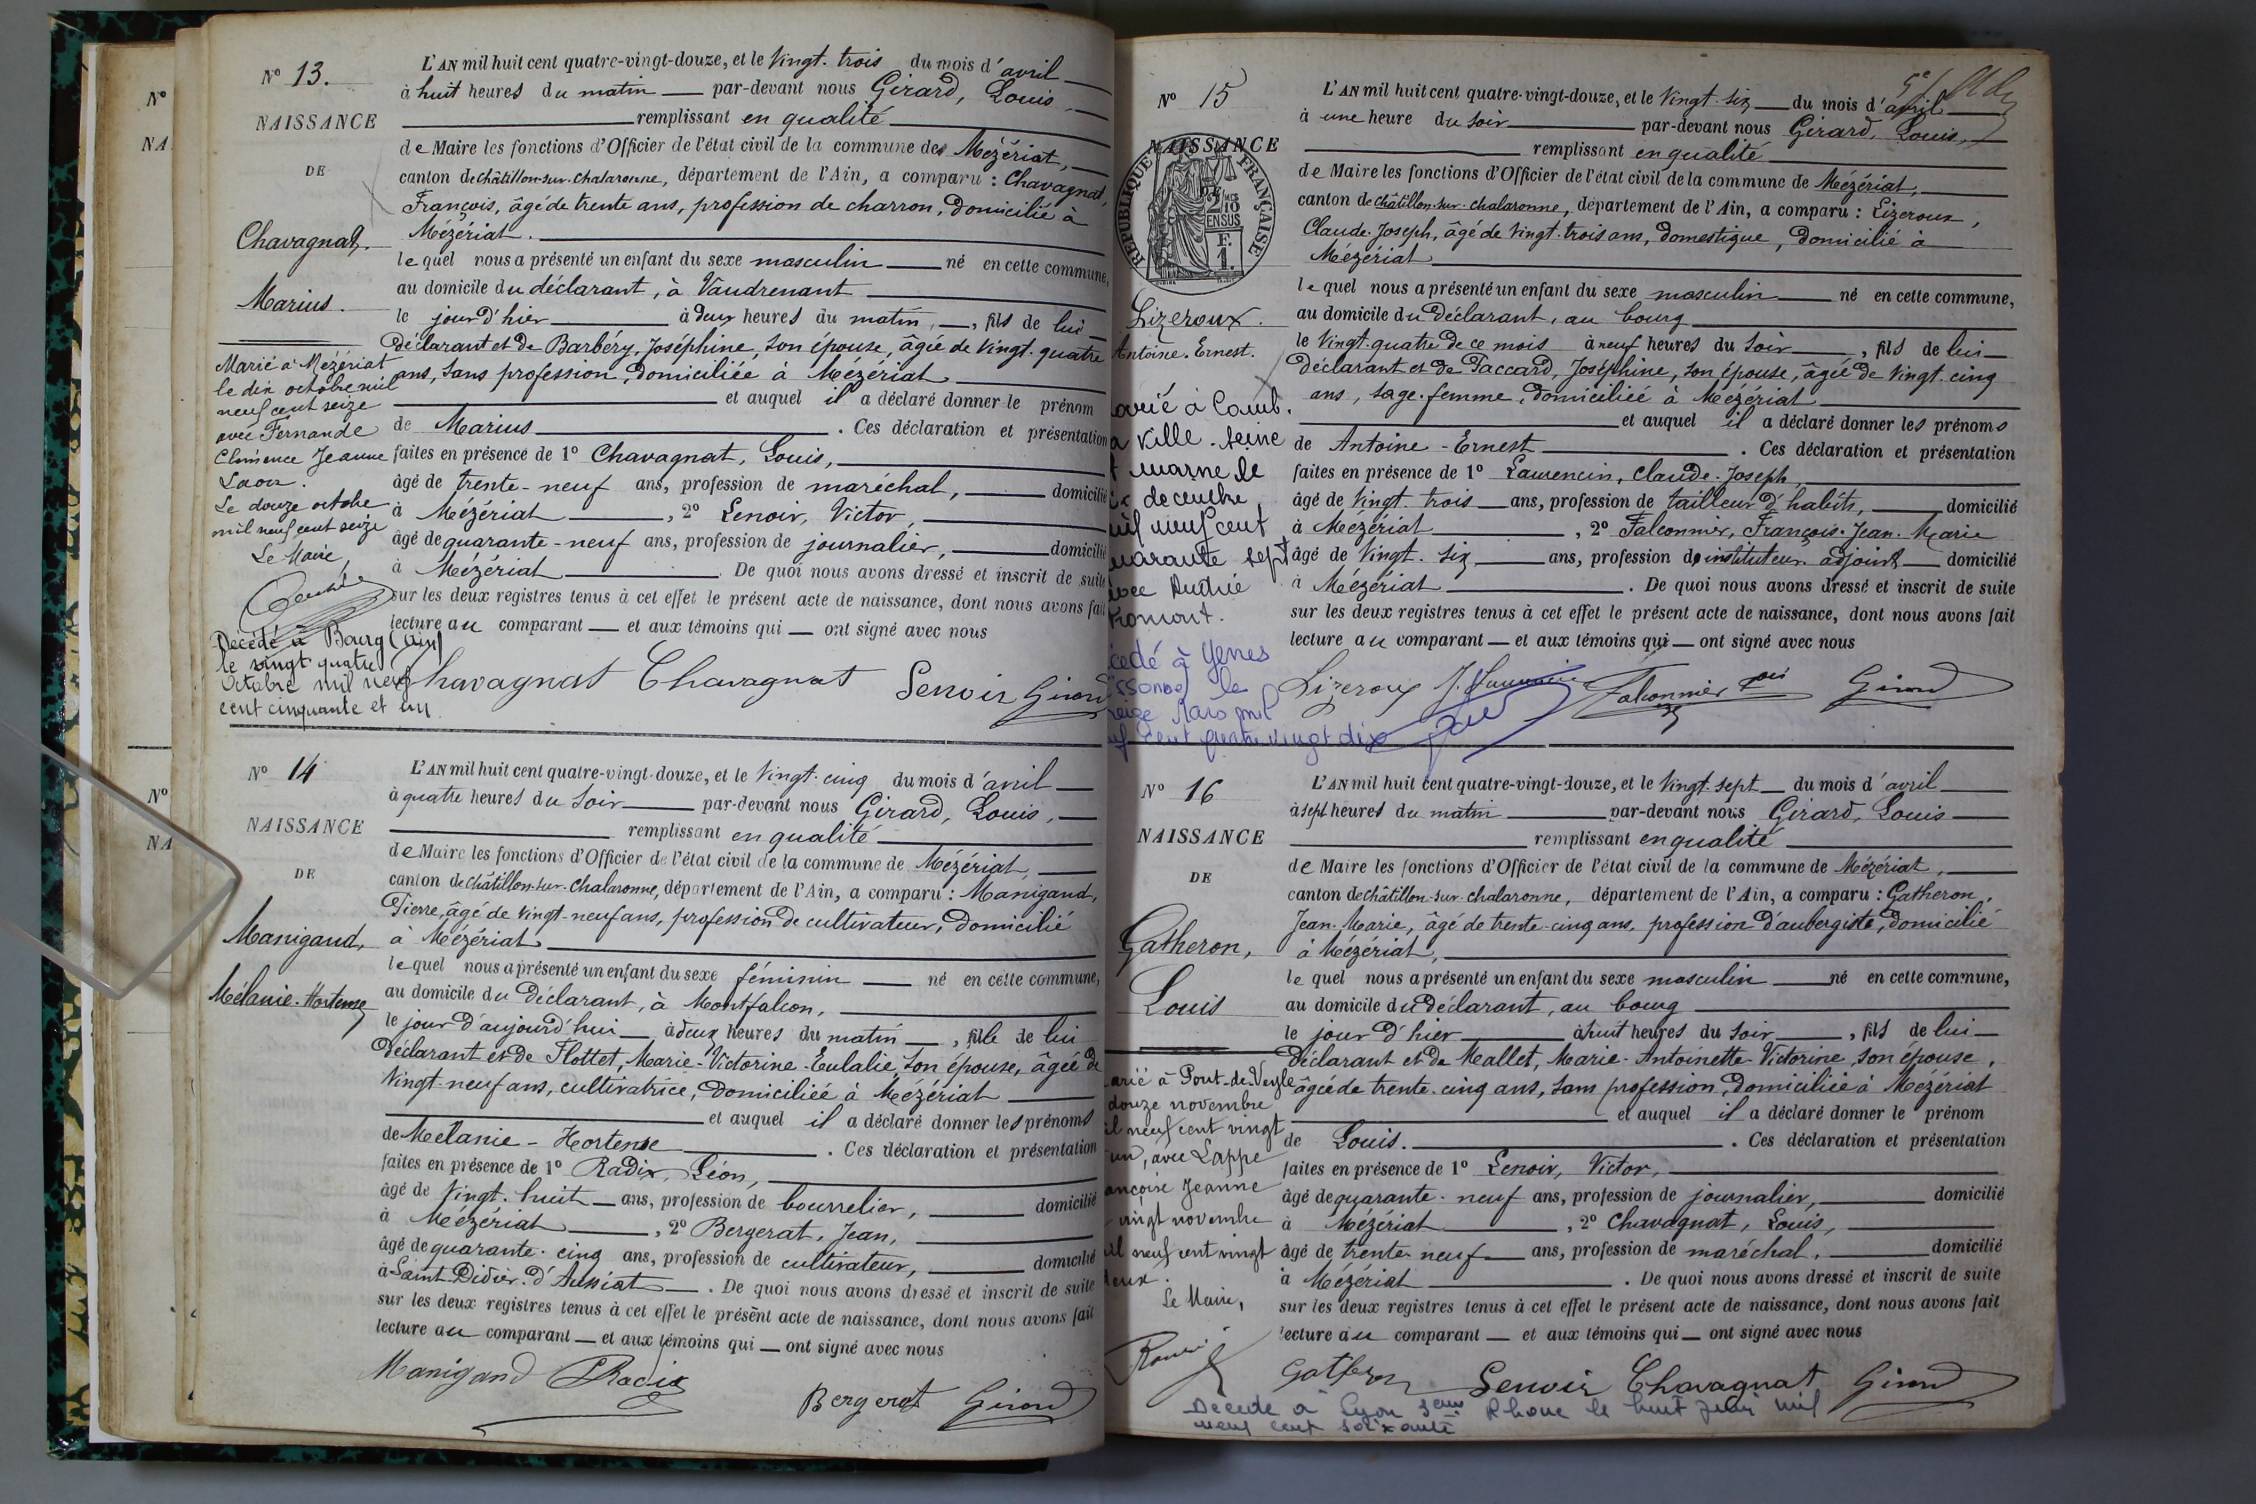 N°
NA
N°
NA
N° 13.
NAISSANCE
DE
Chavagnat,
Marius.
L'AN mil huit cent quatre-vingt-douze, et le Vingt-trois du mois d'avril
à huit heures du matin par-devant nous Girard, Louis,
remplissant en qualité
de Maire les fonctions d'Officier de l'état civil de la commune des Mézériat,
canton de châtillon-sur-chalaronne, département de l'Ain, a comparu : Chavagnat,
François, âgé de trente ans, profession de charron, domicilié à
Mézériat.
lequel nous a présenté un enfant du sexe masculin né en cette commune,
au domicile du déclarant, à Vaudrenant
le jour d'hier à deux heures du matin, fils de lui
déclarant et de Barbéry, Joséphine, son épouse, âgée de vingt-quatre
ans, sans profession, domiciliée à Mézériat
et auquel il a déclaré donner le prénom
de Marius . Ces déclaration et présentation
faites en présence de 1° Chavagnat, Louis,
âgé de trente-neuf ans, profession de maréchal, domicilié
à Mézériat , 2° Lenoir, Victor,
âgé de quarante-neuf ans, profession de journalier, domicilié
à Mézériat . De quoi nous avons dressé et inscrit de suite
sur les deux registres tenus à cet effet le présent acte de naissance, dont nous avons fait
lecture au comparant et aux témoins qui ont signé avec nous
Chavagnat Chavagnat Lenoir Girard
Marié à Mézériat
le dix octobre mil
neuf cent seize
avec Fernande
Clémence Jeanne
Le douze octobre
mil neuf cent seize
Le Maire,
Décédé à Bourg (Ain)
le vingt quatre
Octobre mil neuf
cent cinquante et un
N° 14
NAISSANCE
DE
Manigand,
Mélanie-Hortense
L'AN mil huit cent quatre-vingt-douze, et le Vingt-cinq du mois d'avril
à quatre heures du soir par-devant nous Girard, Louis,
remplissant en qualité
de Maire les fonctions d'Officier de l'état civil de la commune de Mézériat,
canton de châtillon-sur-chalaronne, département de l'Ain, a comparu : Manigand,
Pierre, âgé de vingt-neuf ans, profession de cultivateur, domicilié
à Mézériat
lequel nous a présenté un enfant du sexe féminin né en cette commune,
au domicile du déclarant, à Montfalcon,
le jour d'aujourd'hui à deux heures du matin , fille de lui
déclarant et de Flottet, Marie-Victorine-Eulalie, son épouse, âgée de
vingt-neuf ans, cultivatrice, domiciliée à Mézériat
et auquel il a déclaré donner les prénoms
de Mélanie - Hortense . Ces déclaration et présentation
faites en présence de 1° Radix, Léon,
âgé de vingt-huit ans, profession de bourrelier, domicilié
à Mézériat , 2° Bergerat, Jean,
âgé de quarante-cinq ans, profession de cultivateur, domicilié
à Saint-Didier-d'Aussiat . De quoi nous avons dressé et inscrit de suite
sur les deux registres tenus à cet effet le présent acte de naissance, dont nous avons fait
lecture au comparant et aux témoins qui ont signé avec nous
Manigand Radix
Bergerat Girard
N° 15
NAISSANCE
RÉPUBLIQUE FRANÇAISE
2/10
EN SUS
1 F.
Lizeroux.
Antoine-Ernest.
L'AN mil huit cent quatre-vingt-douze, et le Vingt-six du mois d'avril
à une heure du soir par-devant nous Girard, Louis,
remplissant en qualité
de Maire les fonctions d'Officier de l'état civil de la commune de Mézériat,
canton de châtillon-sur-chalaronne, département de l'Ain, a comparu : Lizeroux,
Claude-Joseph, âgé de vingt-trois ans, domestique, domicilié à
Mézériat
lequel nous a présenté un enfant du sexe masculin né en cette commune,
au domicile du déclarant, au bourg
le vingt-quatre de ce mois à neuf heures du soir , fils de lui
déclarant et de Paccard, Joséphine, son épouse, âgée de vingt-cinq
ans, sage-femme, domiciliée à Mézériat
et auquel il a déclaré donner les prénoms
de Antoine - Ernest . Ces déclaration et présentation
faites en présence de 1° Laurencin, Claude-Joseph,
âgé de vingt-trois ans, profession de tailleur d'habits, domicilié
à Mézériat , 2° Falconnier, François-Jean-Marie
âgé de vingt-six ans, profession d'instituteur adjoint domicilié
à Mézériat . De quoi nous avons dressé et inscrit de suite
sur les deux registres tenus à cet effet le présent acte de naissance, dont nous avons fait
lecture au comparant et aux témoins qui ont signé avec nous
Lizeroux Falconnier Girard
à Comb.
la Ville-Seine
marne le
decembre
mil neuf cent
quarante sept
avec Andrée
Décédé à Yerres
Essonne le
Mars mil
neuf cent quatre vingt dix
N° 16
NAISSANCE
DE
Gatheron,
Louis
L'AN mil huit cent quatre-vingt-douze, et le Vingt-sept du mois d'avril
à sept heures du matin par-devant nous Girard, Louis
remplissant en qualité
de Maire les fonctions d'Officier de l'état civil de la commune de Mézériat,
canton de châtillon-sur-chalaronne, département de l'Ain, a comparu : Gatheron,
Jean-Marie, âgé de trente-cinq ans, profession d'aubergiste, domicilié
à Mézériat,
lequel nous a présenté un enfant du sexe masculin né en cette commune,
au domicile du déclarant, au bourg
le jour d'hier à huit heures du soir , fils de lui
déclarant et de Mallet, Marie-Antoinette-Victorine, son épouse,
âgée de trente-cinq ans, sans profession, domiciliée à Mézériat
et auquel il a déclaré donner le prénom
de Louis. . Ces déclaration et présentation
faites en présence de 1° Lenoir, Victor,
âgé de quarante-neuf ans, profession de journalier, domicilié
à Mézériat , 2° Chavagnat, Louis,
âgé de trente-neuf ans, profession de maréchal, domicilié
à Mézériat . De quoi nous avons dressé et inscrit de suite
sur les deux registres tenus à cet effet le présent acte de naissance, dont nous avons fait
lecture au comparant et aux témoins qui ont signé avec nous
Gatheron Lenoir Chavagnat Girard
arié à Pont-de-Veyle
douze novembre
il neuf cent vingt
un, avec Lappe
ançoise Jeanne
vingt novembre
il neuf cent vingt
deux.
Le Maire,
Décédé à Lyon 3eme Rhone le huit juin mil
neuf cent soixante